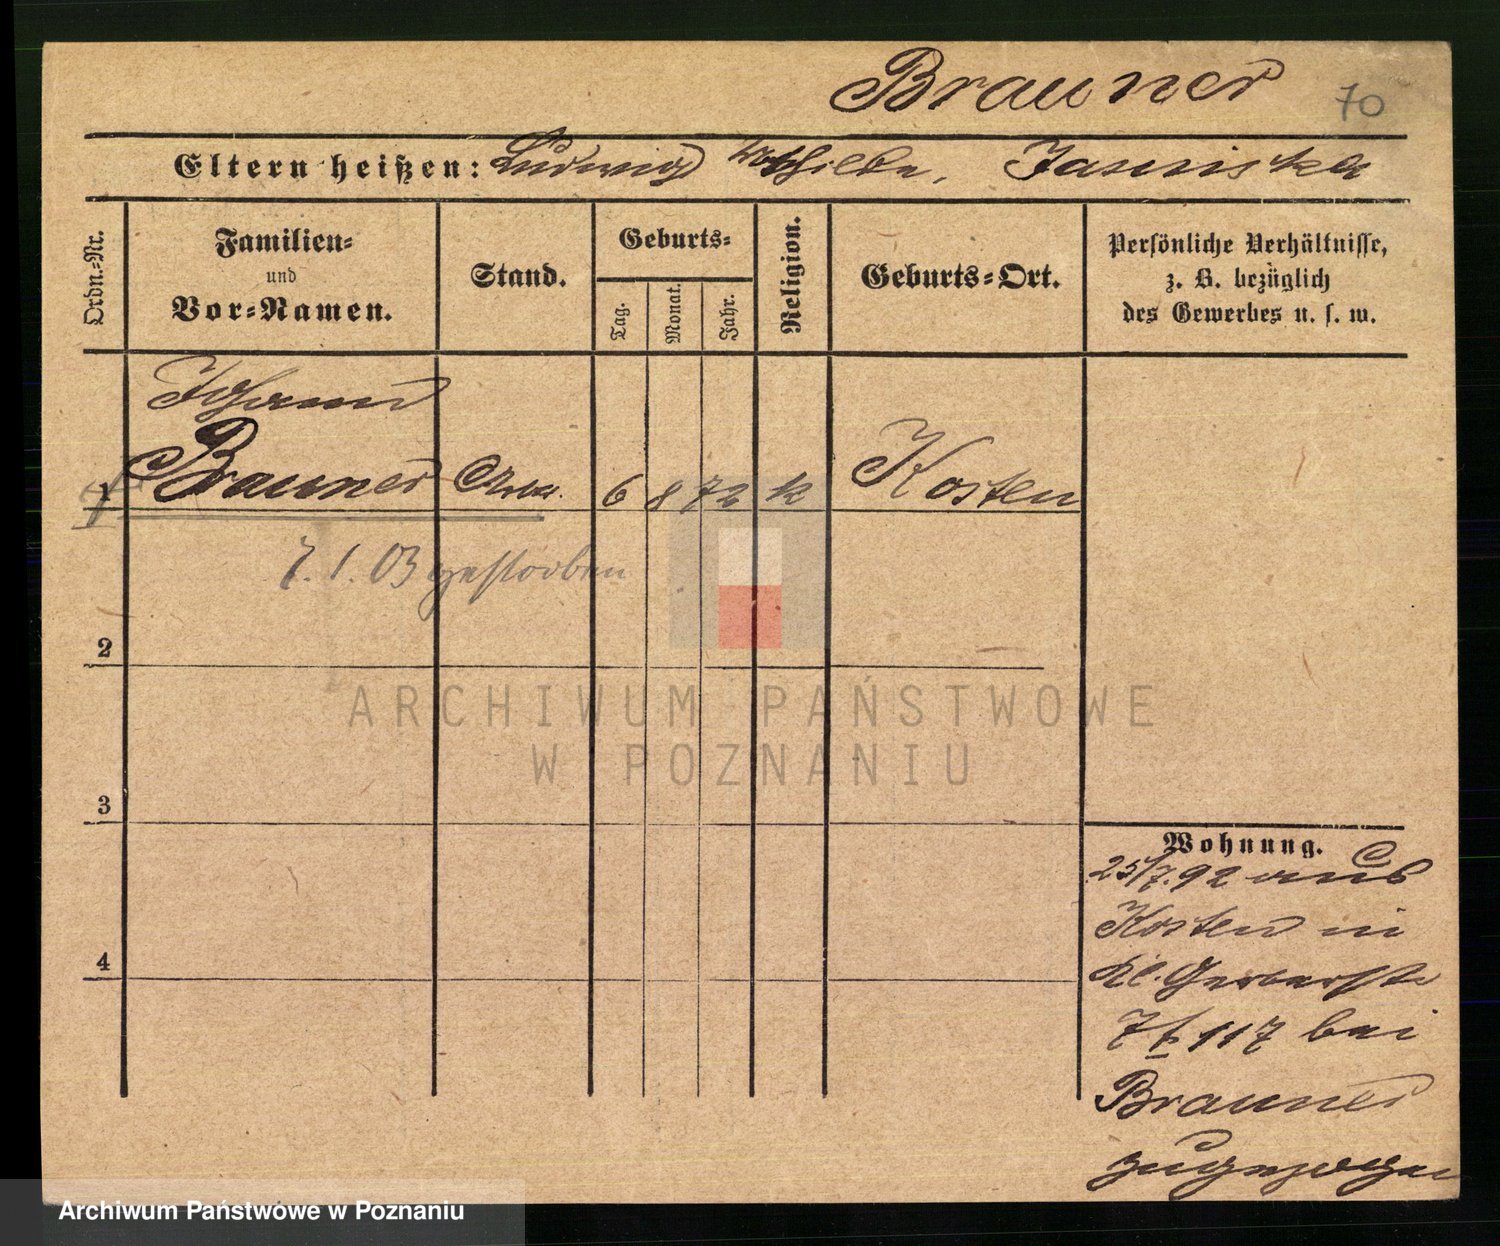 Brauner 70
Eltern heißen: Ludwig Mathilde,
Ordn.-Nr.
Familien-
und
Vor-Namen.
Stand.
Geburts-
Tag.
Monat.
Jahr.
Religion.
Geburts-Ort.
Persönliche Verhältnisse,
z. B. bezüglich
des Gewerbes u. s. w.
Johann
1 Brauner 6 8 72 k Kosten
7. 1. 03 gestorben
2
3
4
Wohnung.
25/7.92 aus
Kosten in
Kl. Gerberstr
7 117 bei
Brauner
zugezogen
ARCHIWUM PAŃSTWOWE
W POZNANIU
Archiwum Państwowe w Poznaniu